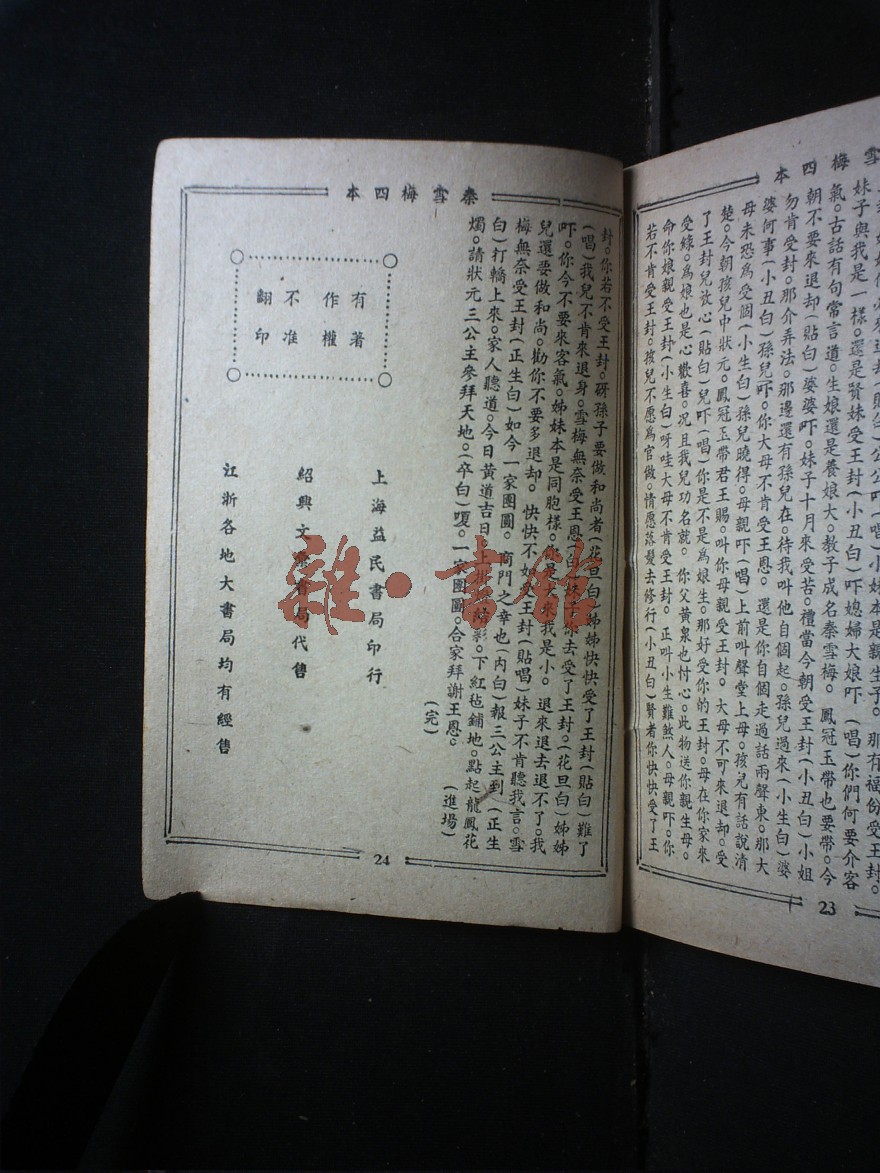 雪梅四本
妹子與我是一樣。還是賢妹受王封(小丑白)吓媳婦大娘吓(唱)你們何要介客
氣。古話有句常言道。生娘還是養娘大。教子成名秦雪梅。鳳冠玉帶也要帶。今
朝不要來退却(貼白)婆婆吓。妹子十月來受苦。禮當今朝受王封(小丑白)小姐
勿肯受封。那介弄法。那邊還有孫兒在。待我叫他自個起。孫兒過來(小生白)婆
婆何事(小丑白)孫兒吓。你大母不肯受王恩。還是你自個走過話兩聲東。那大
母未恐爲受個(小生白)孫兒曉得。母親吓(唱)上前叫聲堂上母。孩兒有話說清
楚。今朝孩兒中狀元。鳳冠玉帶君王賜。叫你母親受王封。大母不可來退却。受
了王封兒放心(貼白)兒吓(唱)你是不是爲娘生。那好受你的王封。母在你家來
受綠。爲娘也是心歡喜。况且我兒功名就。你父黄泉也忖心。此物送你親生母。
命你娘親受王封(小生白)呀哇大母不肯受王封。正叫小生難煞人。母親吓。你
若不肯受王封。孩兒不愿爲官做。情愿落髮去修行(小丑白)賢者你快快受了王
23
秦雪梅四本
封。你若不受王封。砑孫子要做和尚者(花旦白)姊姊快快受了王封(貼白)難了
(唱)我兒不肯來退身。雪梅無奈受王恩(白)妹子你去受了王封。(花旦白)姊姊
吓。你今不要來客氣。姊妹本是同胞樣。你是大來我是小。退來退去退不了。我
兒還要做和尚。勸你不要多退却。快快不如受王封(貼唱)妹子不肯聽我言。雪
梅無奈受王封(正生白)如今一家團圓。商門之幸也(内白)報三公主到(正生
白)打轎上來。家人聽道。今日黄道吉日。上掛結彩。下紅毡鋪地。點起龍鳳花
燭。請狀元三公主參拜天地。(卒白)嗄。一家團圓。合家拜謝王恩。(進場)
(完)
有著
作權
不准
翻印
上海益民書局印行
紹興文書局代售
江浙各地大書局均有經售
24
雜·書館